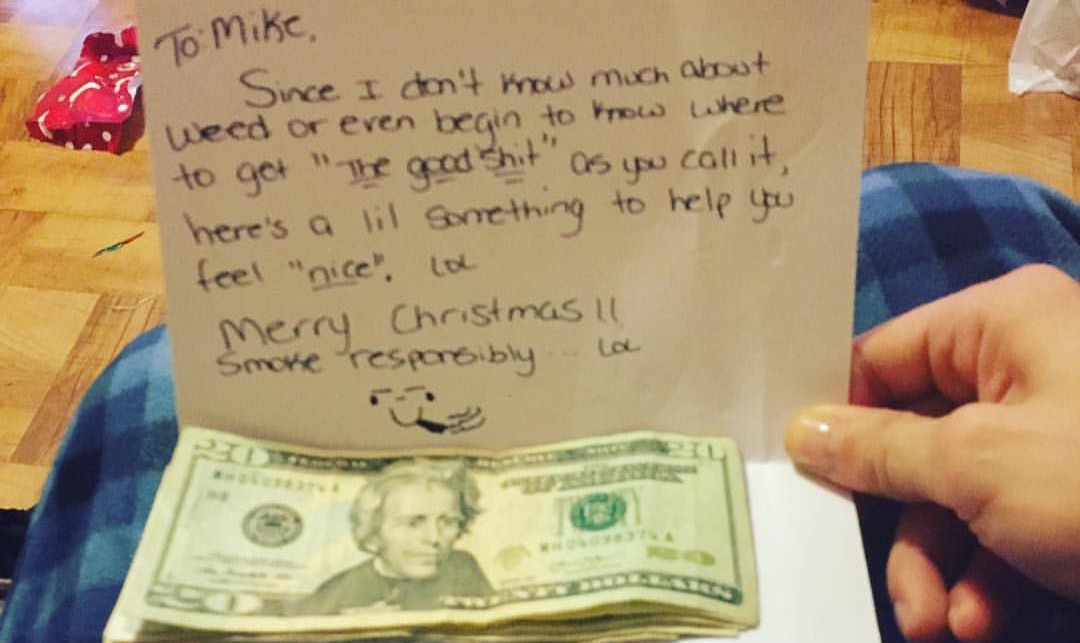 To: Mike,
Since I don't know much about
weed or even begin to know where
to get "The good shit" as you call it,
here's a lil something to help you
feel "nice". LOL
Merry Christmas!!
Smoke responsibly... LOL
20
20
20